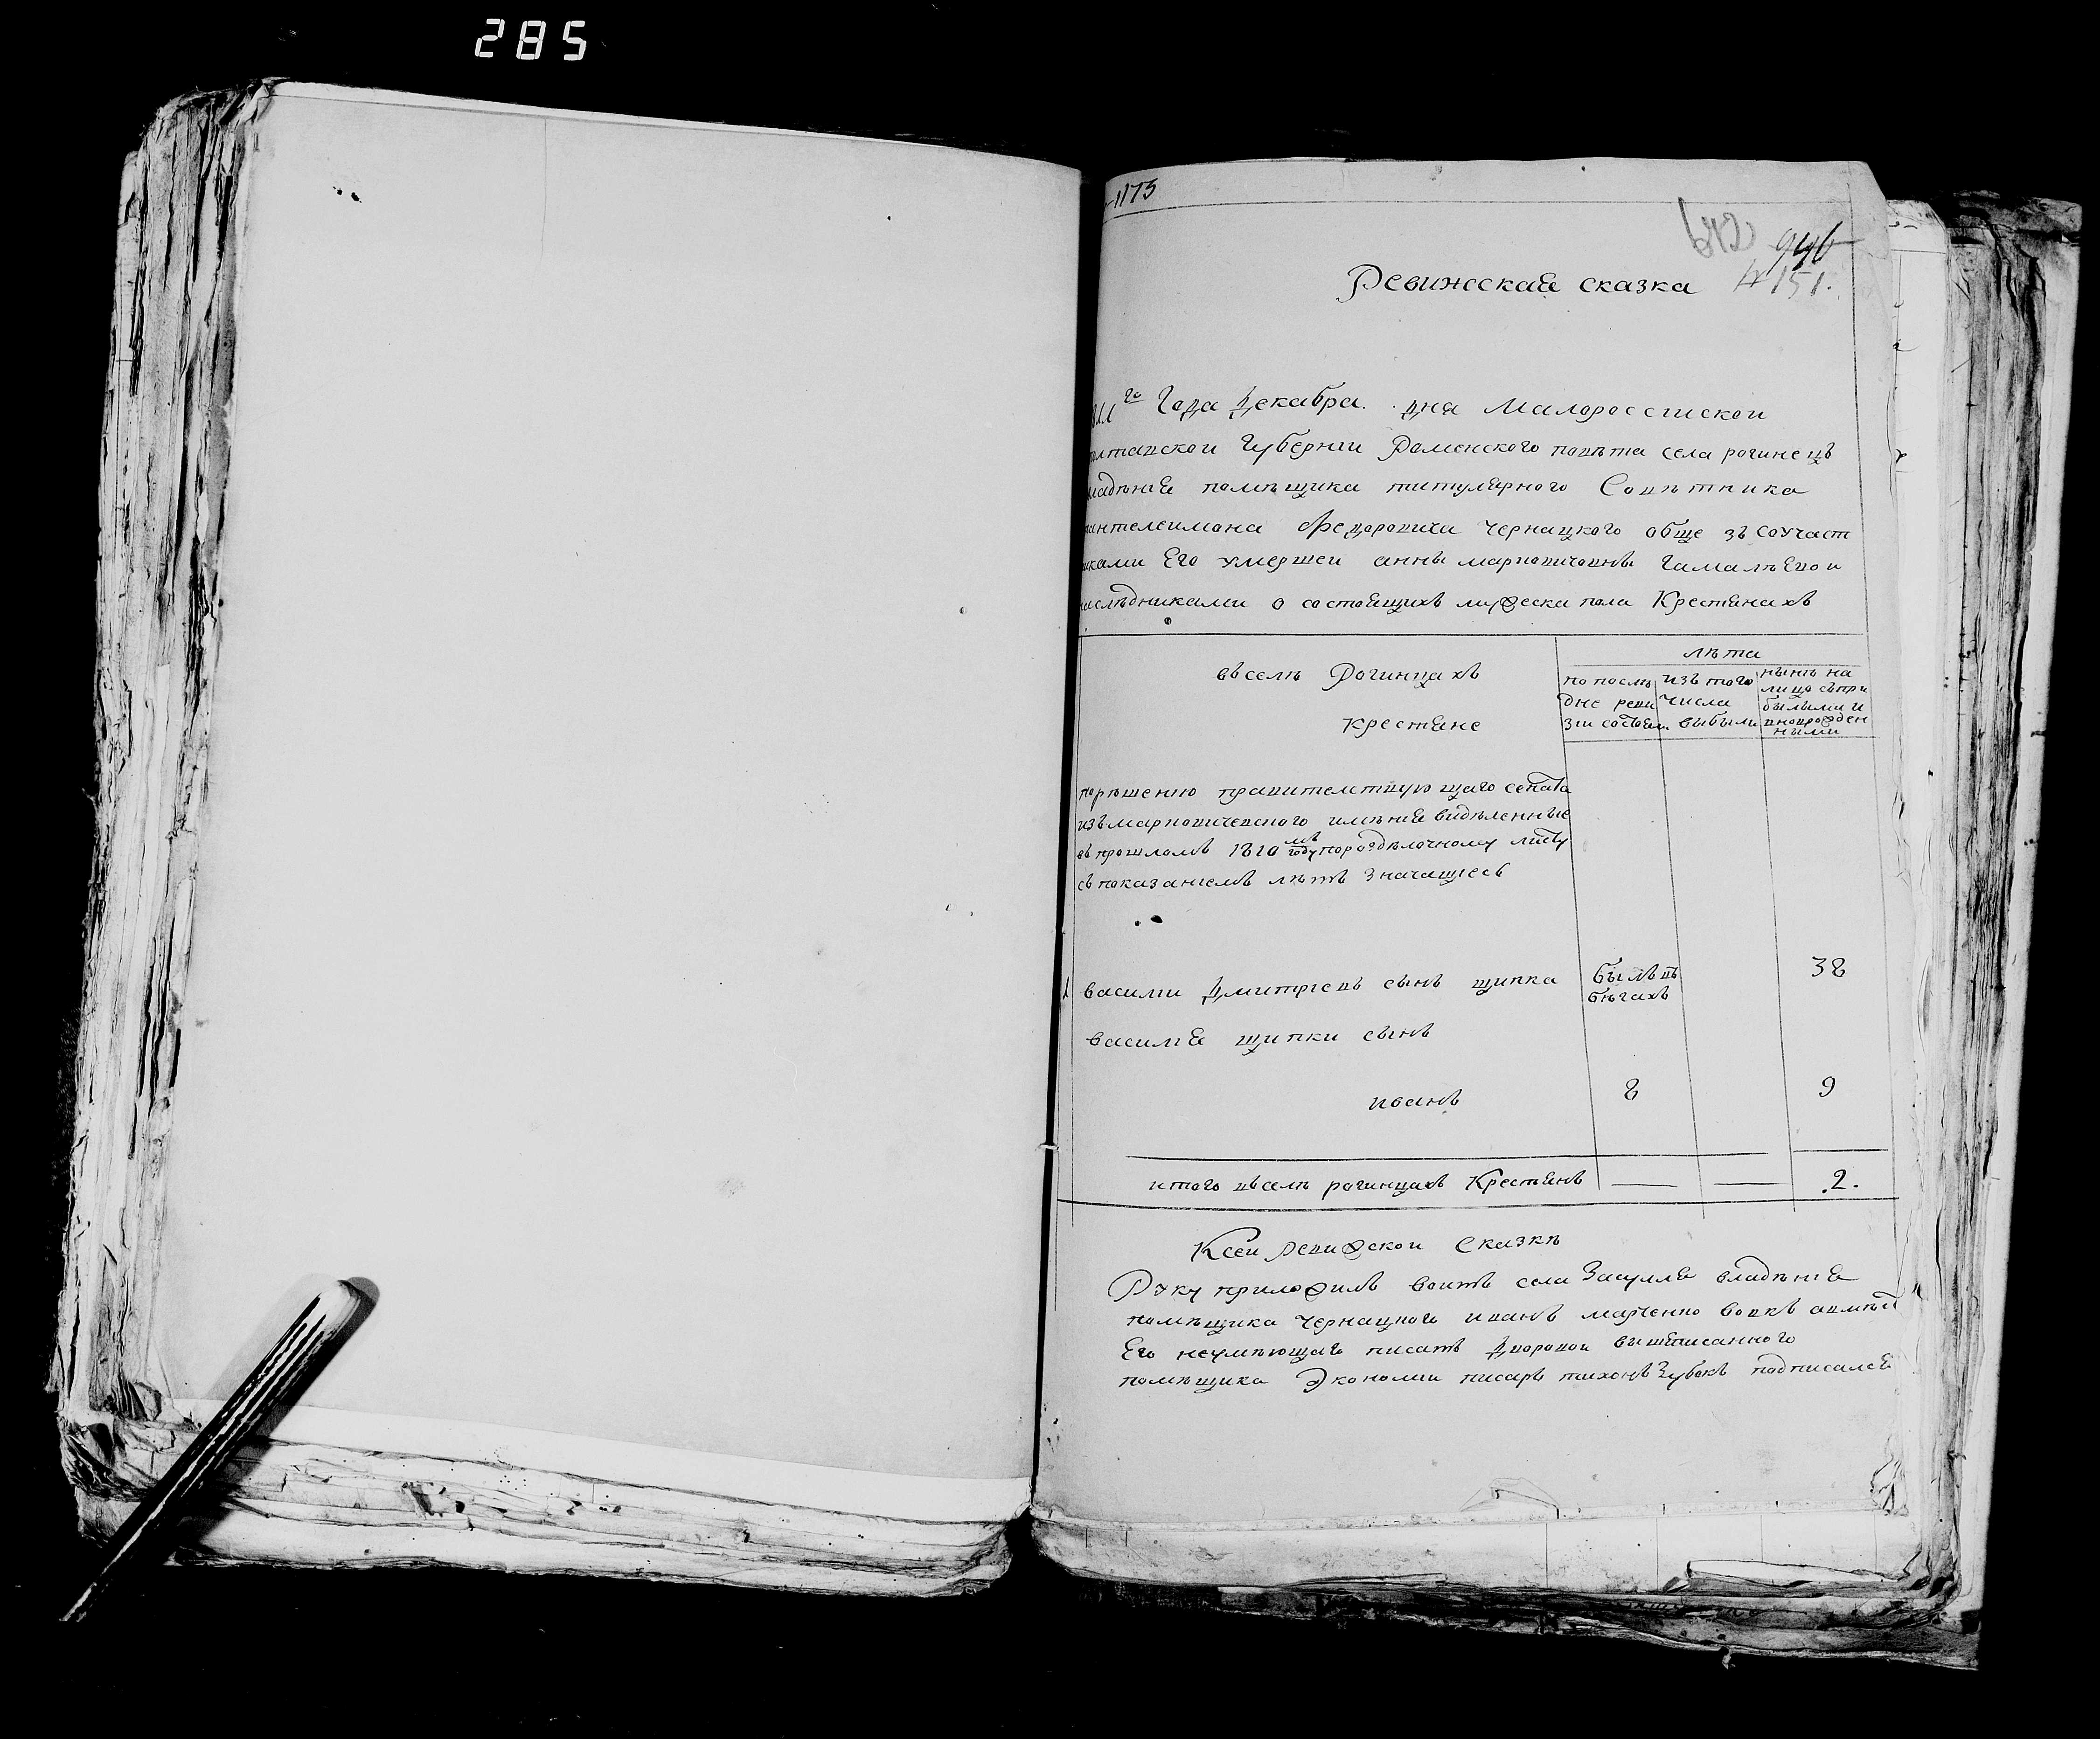 285
1175
642
946
151.
Ревижская сказка
го Года Декабра. дня Малороссиской
лтавской Губернии Роменского повѣта села рогинецъ
ладѣния помѣщика титулярного Совѣтника
антелеимона Федоровича Чернацкого обще зъ соучаст
иками Его умершей анны марковичовны Гамалѣевой
наслѣдниками о состоящихъ мужеска пола Крестянахъ
въ селѣ Рогинцахъ
Крестяне
лѣта
по послѣ
дне реви
зии состояли
изъ того
числа
выбыли
нынѣ на
лицо съ при
былыми и
вновро жден
ными
по рѣшению правителствующаго сената
изъ марковичевского имѣния видѣленные
въ прошломъ 1810 мъ году по роздѣлочному листу
съ показаниемъ лѣтъ Значащиесь
1 Василий Дмитриевъ сынъ щипка былъ въ бѣгахъ 38
Василия щипки сынъ
иванъ 8 9
итого въ селѣ рогинцахъ Крестянъ — — 2.
К сей ревижской Сказкѣ
Руку приложилъ Воитъ села Засулля владѣния
помѣщика Чернацкого иванъ марченко Вовкъ авмѣст
Его неумѣющаго писать Дворовой вышеписанного
помѣщика Экономии писарь тихонъ Зубокъ подписался